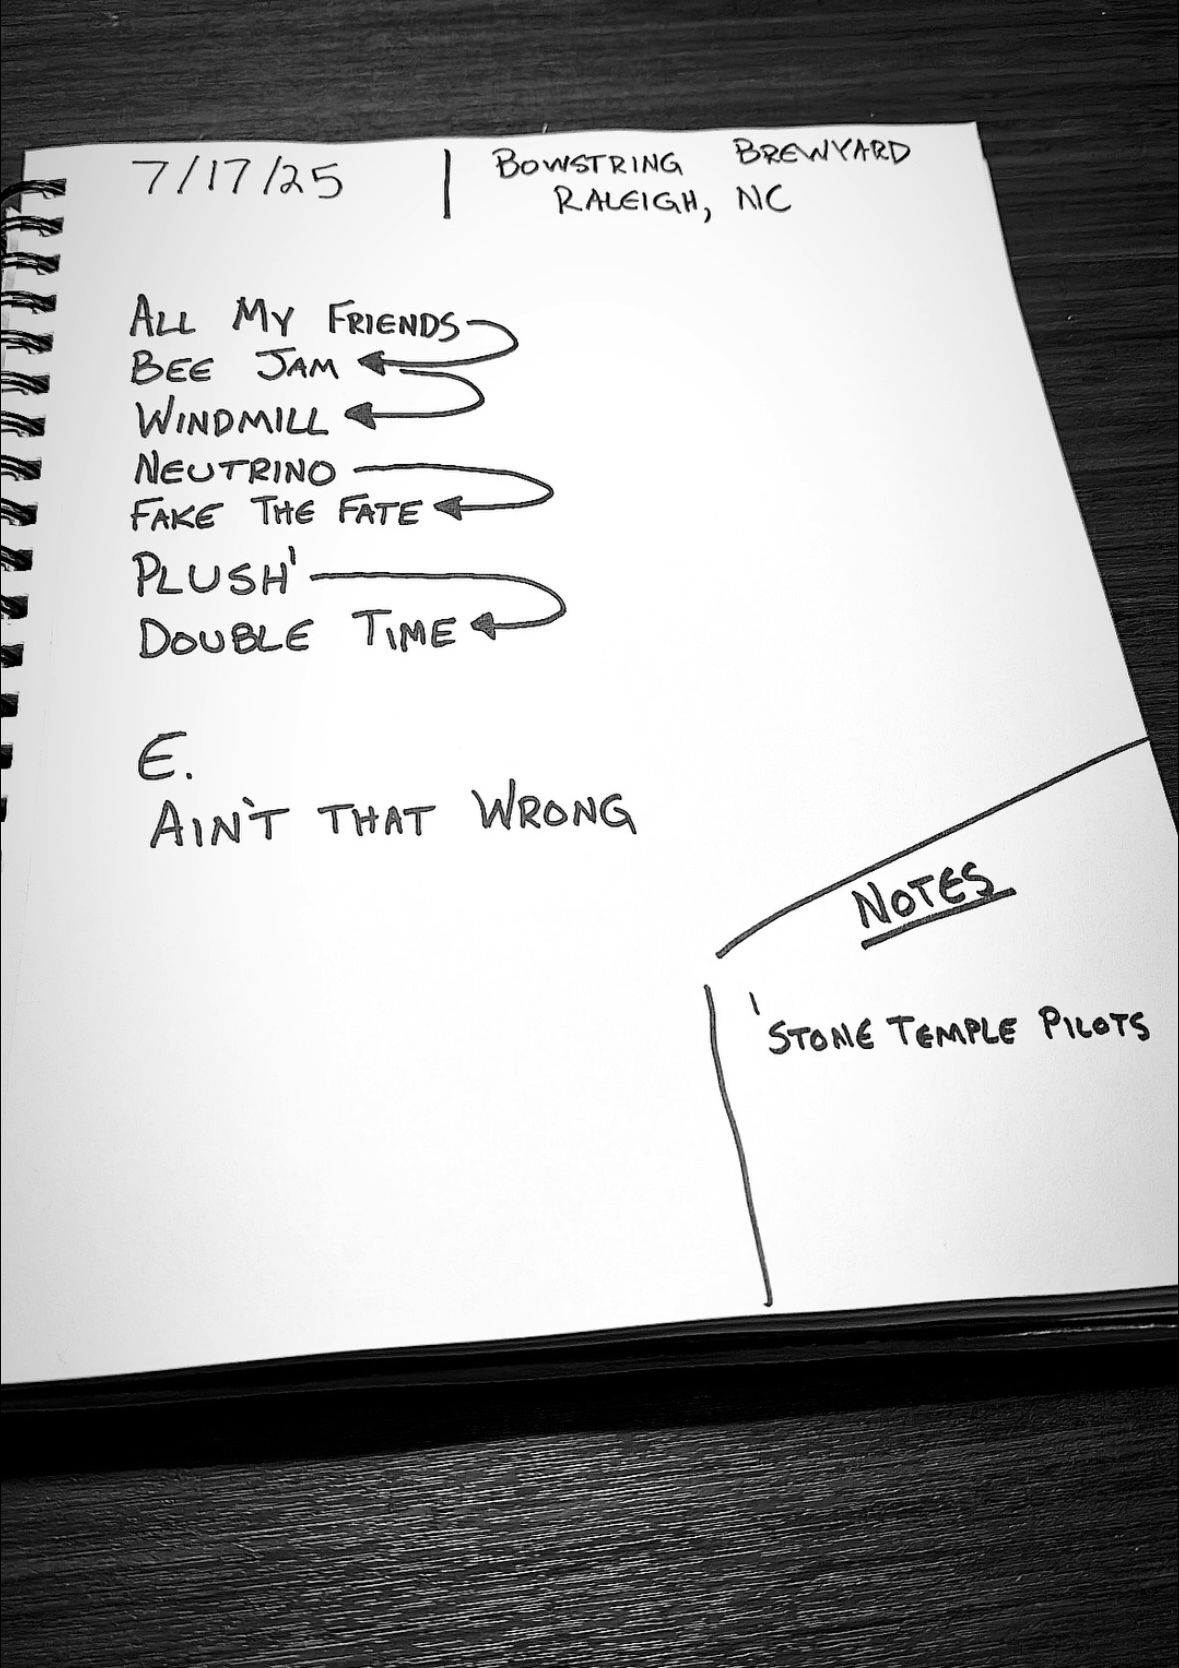 7/17/25 | BOWSTRING BREWYARD
RALEIGH, NC
ALL MY FRIENDS
BEE JAM
WINDMILL
NEUTRINO
FAKE THE FATE
PLUSH¹
DOUBLE TIME
E.
AIN'T THAT WRONG
NOTES
¹STONE TEMPLE PILOTS